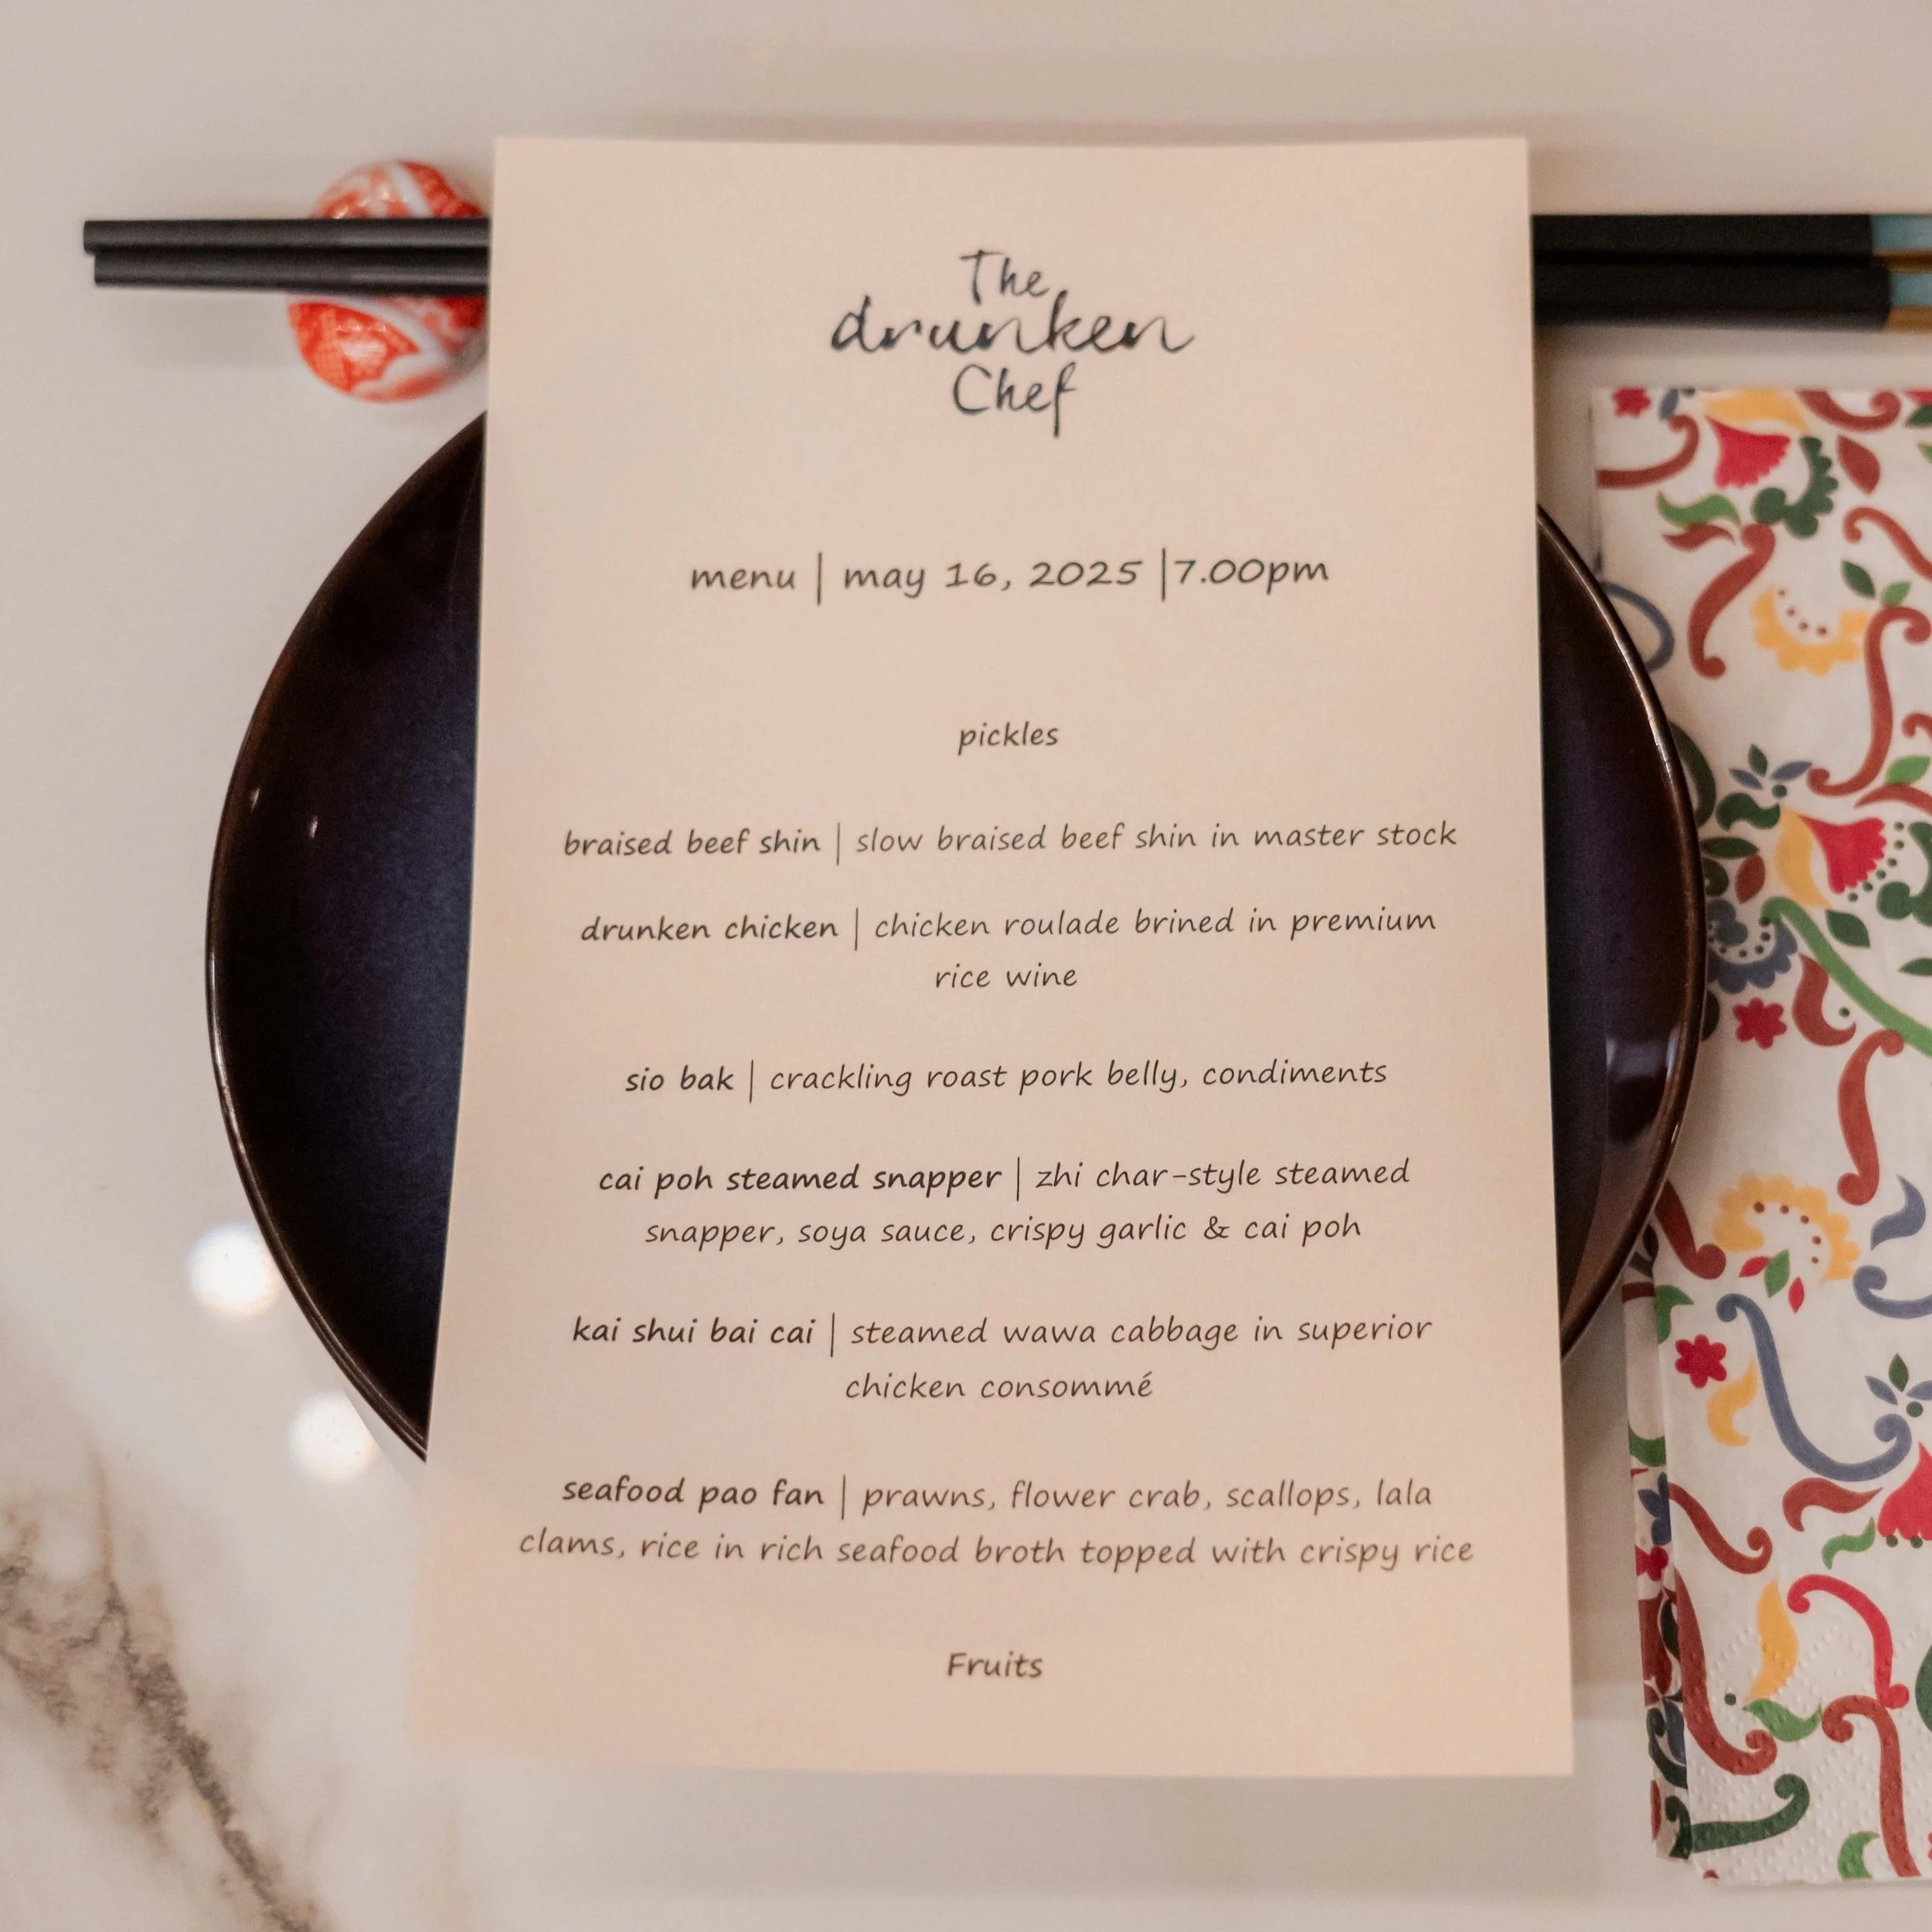 The
drunken
Chef
menu | may 16, 2025 |7.00pm
pickles
braised beef shin | slow braised beef shin in master stock
drunken chicken | chicken roulade brined in premium
rice wine
sio bak | crackling roast pork belly, condiments
cai poh steamed snapper | zhi char-style steamed
snapper, soya sauce, crispy garlic & cai poh
kai shui bai cai | steamed wawa cabbage in superior
chicken consommé
seafood pao fan | prawns, flower crab, scallops, lala
clams, rice in rich seafood broth topped with crispy rice
Fruits